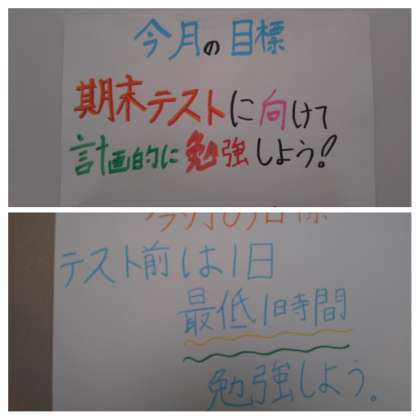 今月の目標
期末テストに向けて
計画的に勉強しよう!
今月の目標
テスト前は1日
最低1時間
勉強しよう。